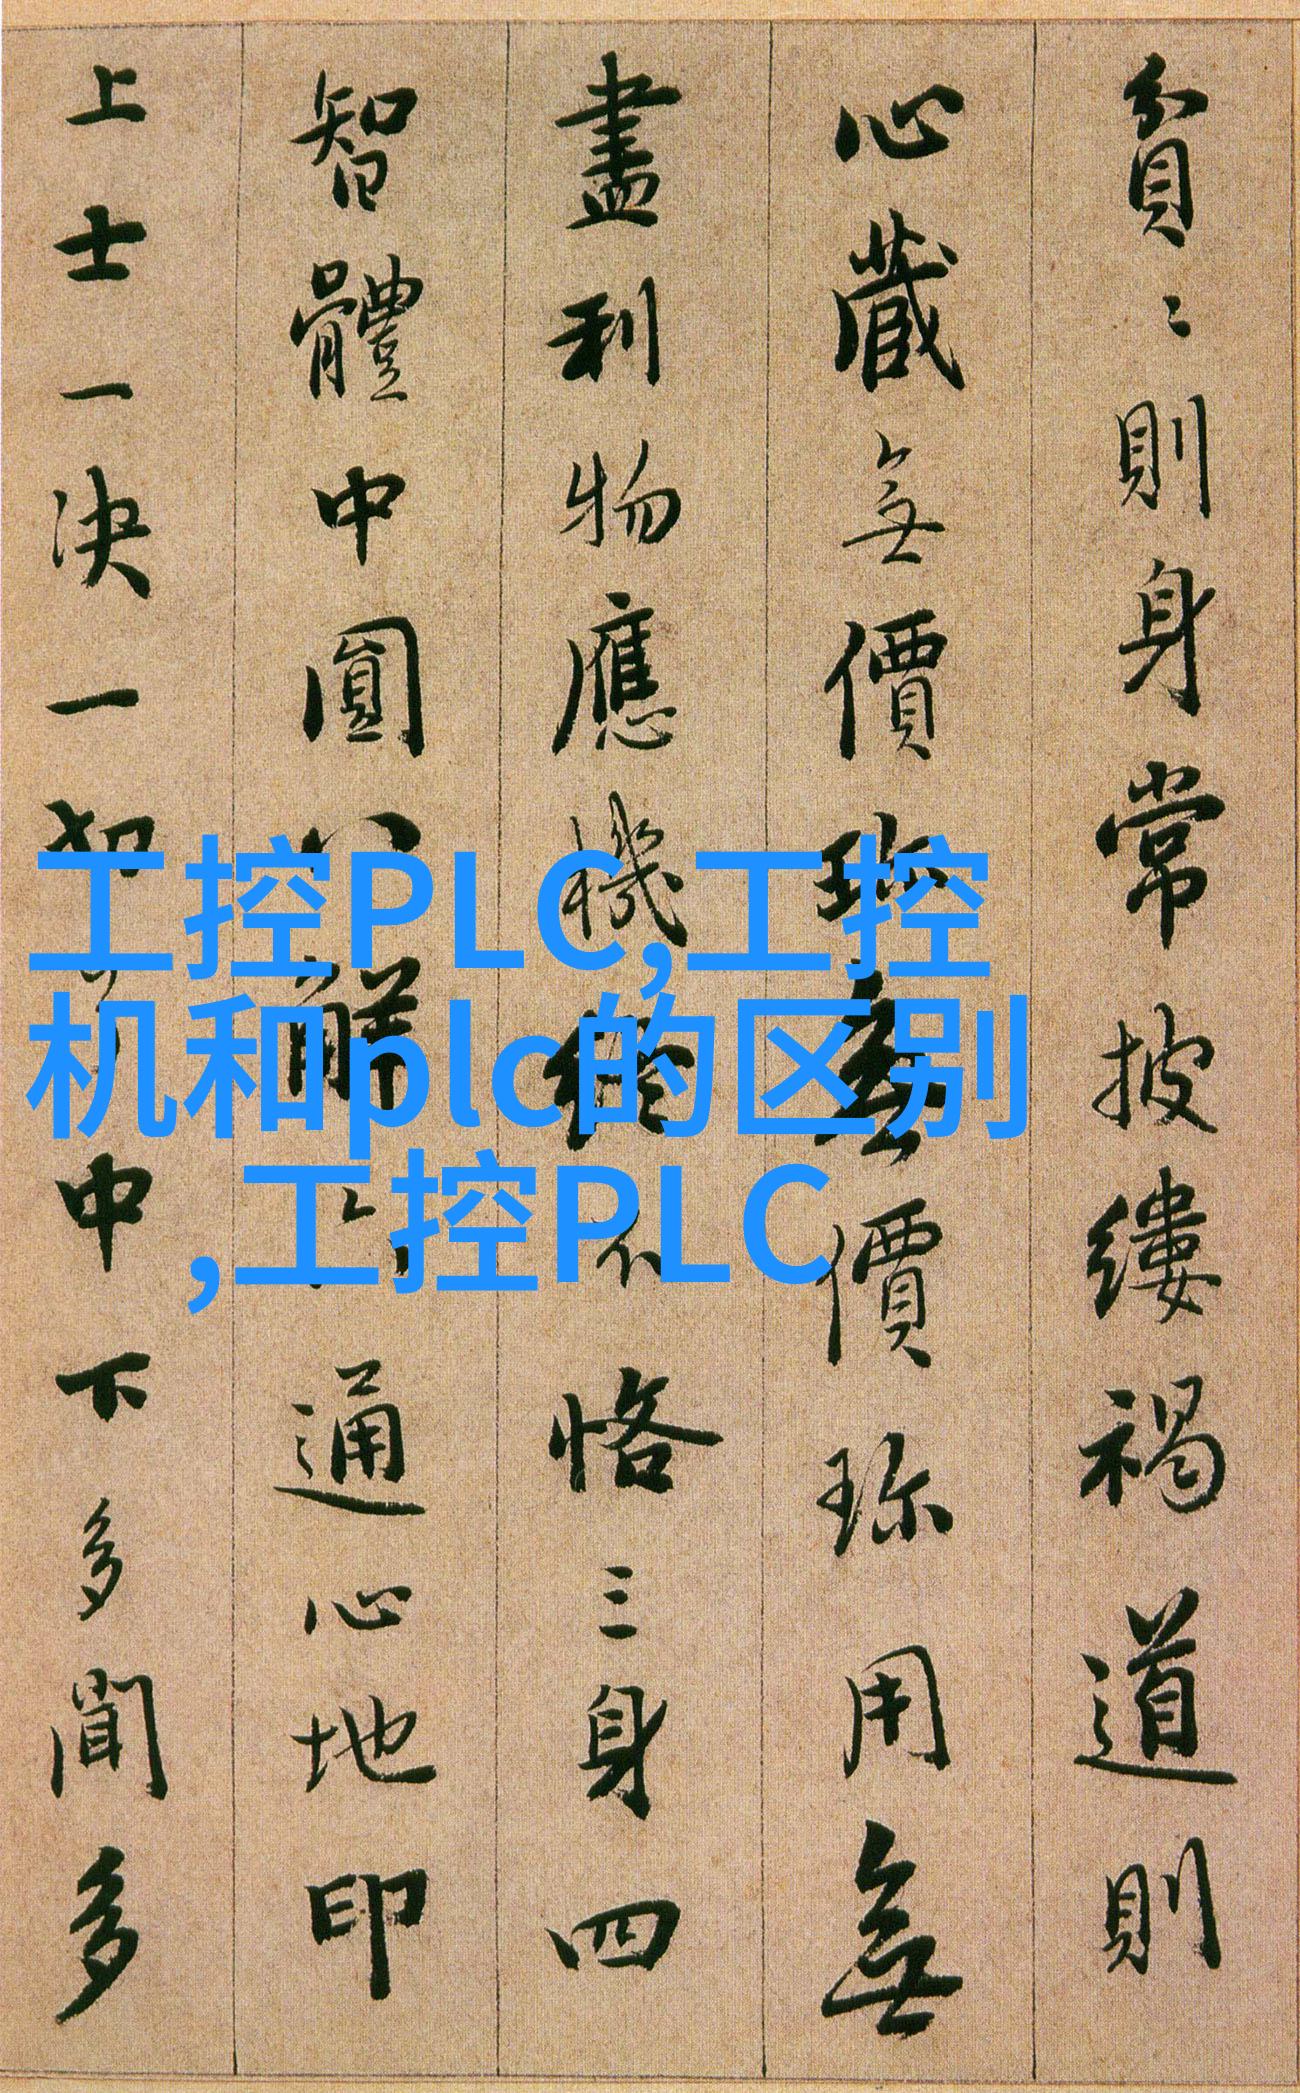 貧〻則身常披縷褐道則
心藏無價珎無價珎用無
盡利物應機終不恪三身四
智體中圓八解六通心地印
上士一决一切中下多聞多
工控PLC,工控
机和plc的区别
,工控PLC